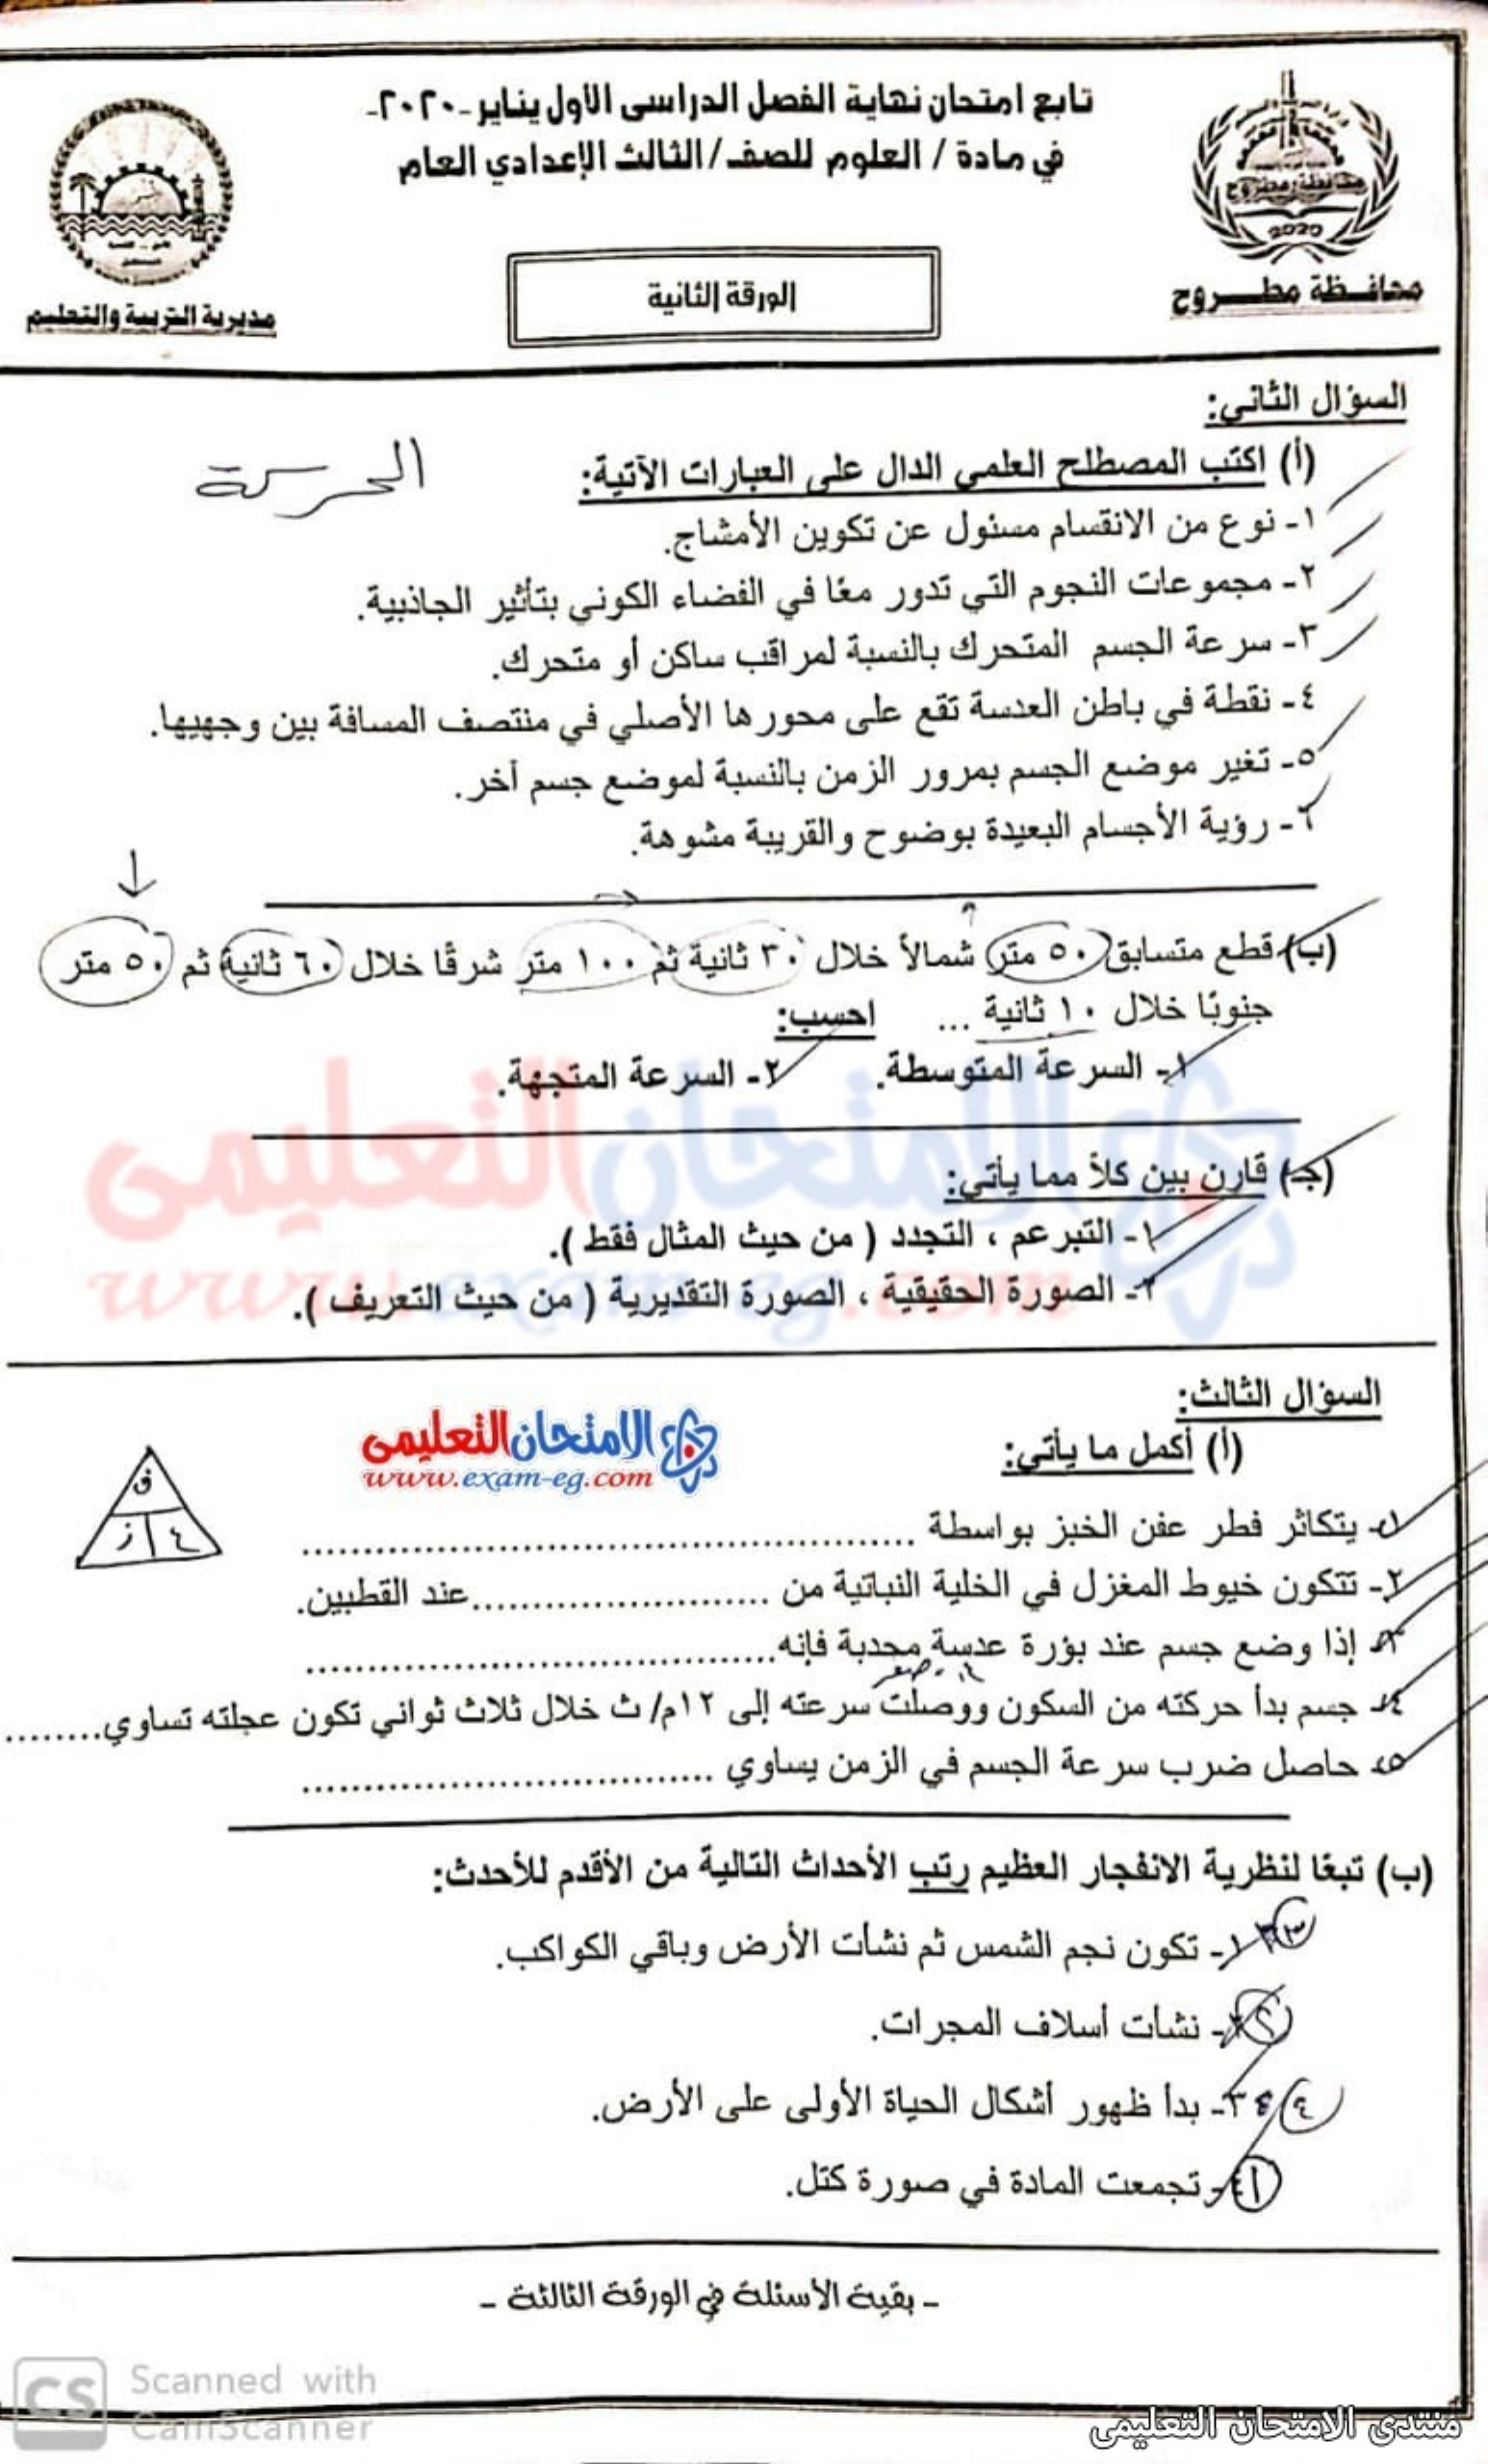 تابع امتحان نهاية الفصل الدراسى الأول يناير -٢٠٢٠-
في مادة / العلوم للصف/ الثالث الإعدادي العام
محافظة مطروح
2020
محافظة مطـــروح
مديرية التربية والتعليم
الورقة الثانية
السؤال الثاني:
(أ) اكتب المصطلح العلمي الدال على العبارات الآتية:
الحركة
١- نوع من الانقسام مسئول عن تكوين الأمشاج.
٢- مجموعات النجوم التي تدور معًا في الفضاء الكوني بتأثير الجاذبية.
٣- سرعة الجسم المتحرك بالنسبة لمراقب ساكن أو متحرك.
٤- نقطة في باطن العدسة تقع على محورها الأصلي في منتصف المسافة بين وجهيها.
٥- تغير موضع الجسم بمرور الزمن بالنسبة لموضع جسم أخر.
٦- رؤية الأجسام البعيدة بوضوح والقريبة مشوهة.
(ب) قطع متسابق ٥٠ متر شمالاً خلال ٣٠ ثانية ثم ١٠٠ متر شرقًا خلال ٦٠ ثانية ثم ٥٠ متر
جنوبًا خلال ١٠ ثانية ... احسب:
١- السرعة المتوسطة. ٢- السرعة المتجهة.
(جـ) قارن بين كلاً مما يأتي:
١- التبرعم ، التجدد ( من حيث المثال فقط ).
٢- الصورة الحقيقية ، الصورة التقديرية ( من حيث التعريف ).
السؤال الثالث:
(أ) أكمل ما يأتي:
الامتحان التعليمى
www.exam-eg.com
ف
ع ز
١- يتكاثر فطر عفن الخبز بواسطة ..................................................
٢- تتكون خيوط المغزل في الخلية النباتية من .........................عند القطبين.
٣- إذا وضع جسم عند بؤرة عدسة محدبة فإنه.......................................
٤- جسم بدأ حركته من السكون ووصلت سرعته إلى ١٢م/ ث خلال ثلاث ثواني تكون عجلته تساوي........
٥- حاصل ضرب سرعة الجسم في الزمن يساوي ..................................
(ب) تبعًا لنظرية الانفجار العظيم رتب الأحداث التالية من الأقدم للأحدث:
٣ ١- تكون نجم الشمس ثم نشأت الأرض وباقي الكواكب.
٢ ٢- نشأت أسلاف المجرات.
٤ ٣- بدأ ظهور أشكال الحياة الأولى على الأرض.
١ ٤- تجمعت المادة في صورة كتل.
- بقية الأسئلة في الورقة الثالثة -
CS Scanned with
CamScanner
منتدى الامتحان التعليمى